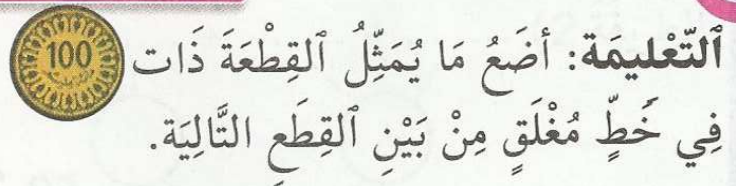 ٱلتّعْلِيمَة: أضَعُ مَا يُمَثِّلُ ٱلقِطْعَةَ ذَات 100
فِي خَطٍّ مُغْلَقٍ مِنْ بَيْنِ ٱلقِطَعِ التَّالِيَة.